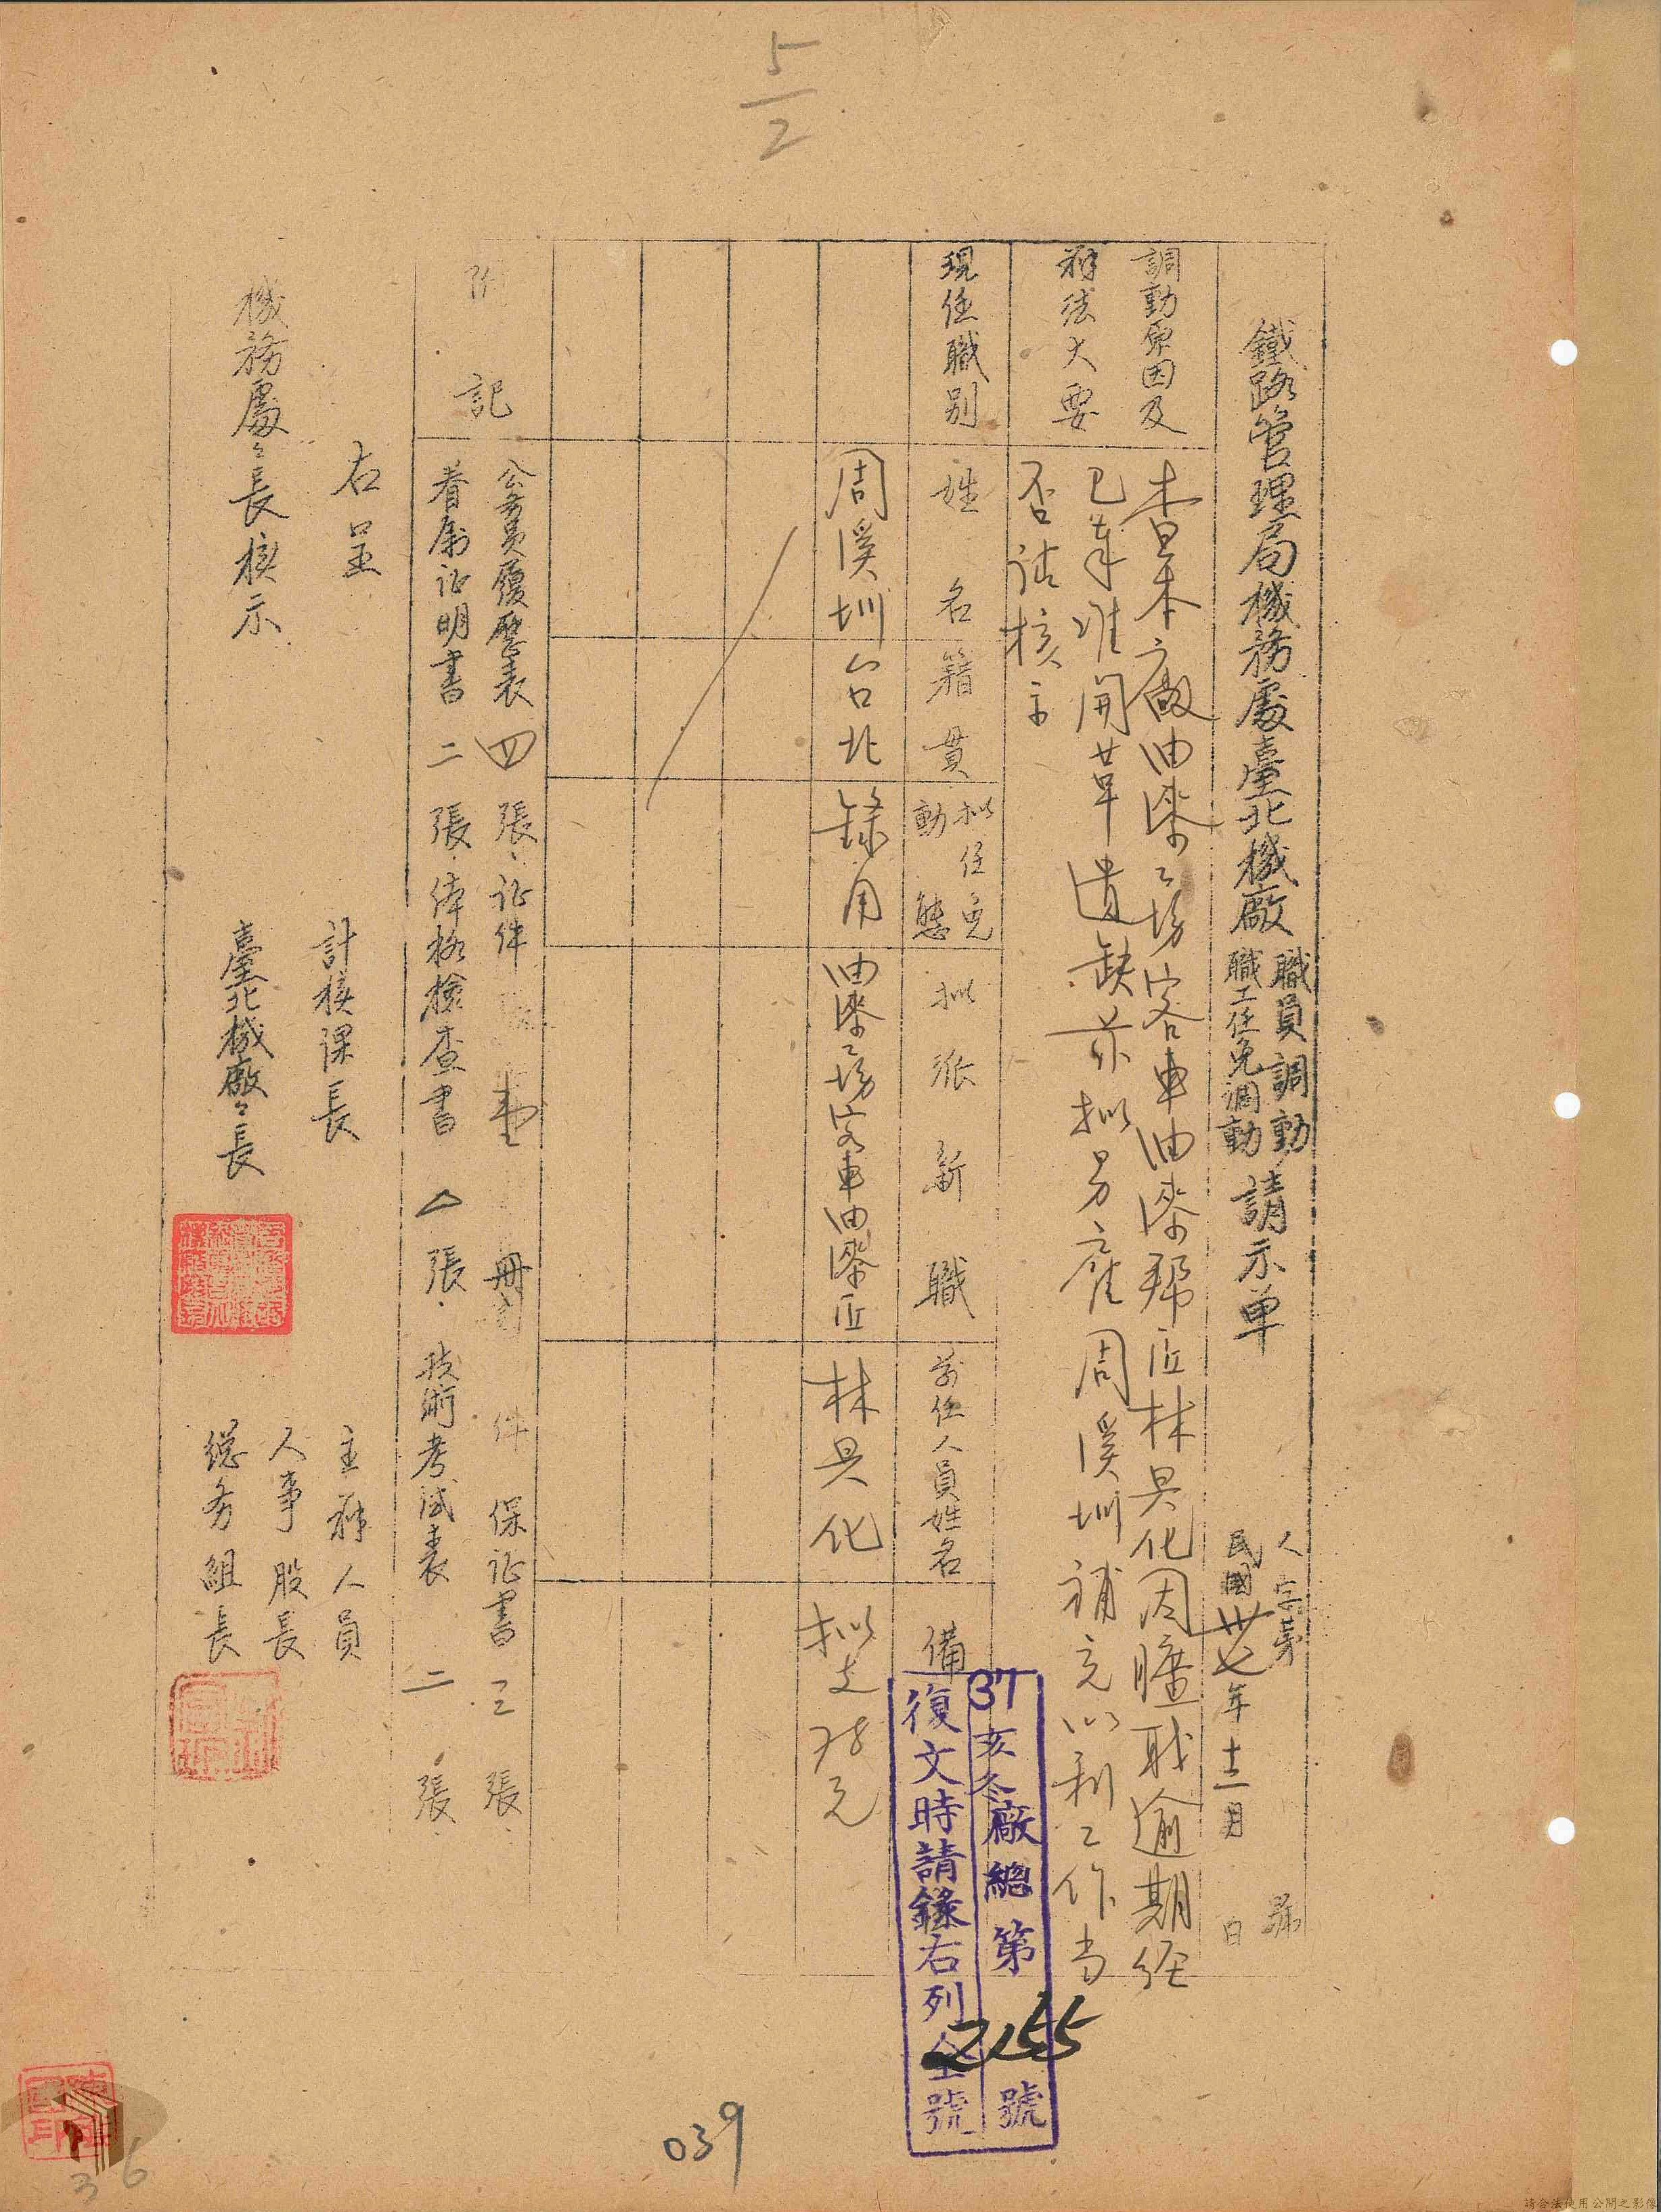 5/2
鐵路管理局機務處臺北機廠
職員調動
職工任免調動
請示单
人字第 號
民國卅七年十二月 日
調動原因及
辦法大要
查本廠油漆工場客車油漆帮匠林具化因曠職逾期經
已奉准開革遺缺茲拟另雇周溪圳補充以利工作当
否請核示
現任職别
姓名
籍貫
拟任免
動態
拟派新職
前任人員姓名
備
周溪圳
台北
錄用
油漆工場客車油漆匠
林具化
拟支 元
37亥冬廠總第2155號
復文時請錄右列全號
附記
公务員履歷表 四 張、证件 壹 冊 件 保证書 三 張、
眷屬证明書 二 張、体格檢查書 張、技術考試表 二 張、
右呈
機務處々長核示
計核課長
臺北機廠々長
主辦人員
人事股長
総务組長
039
36
請合法使用公開之影像